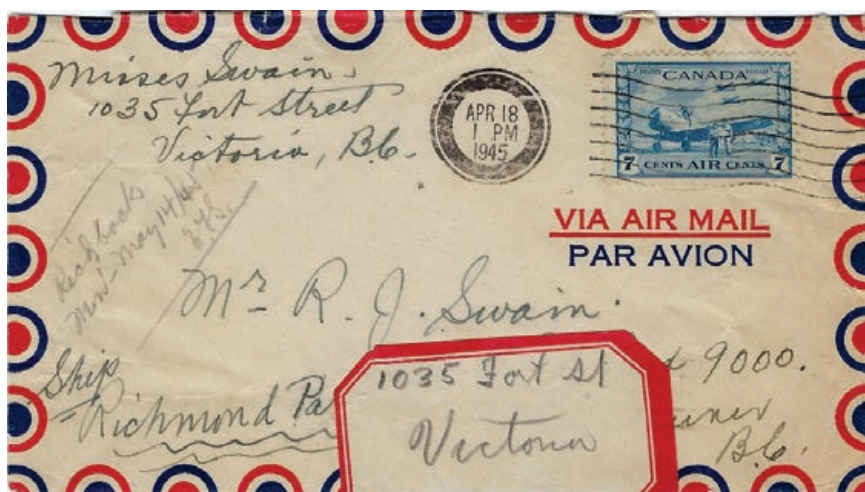 Misses Swain
1035 Fort Street
Victoria, B.C.
APR 18
1 PM
1945
CANADA
7 CENTS AIR CENTS 7
VIA AIR MAIL
PAR AVION
Rec'd back
Mon- May 14/45
Mr R. J. Swain.
Ship
Richmond Pa
9000.
B.C.
1035 Fort St
Victoria